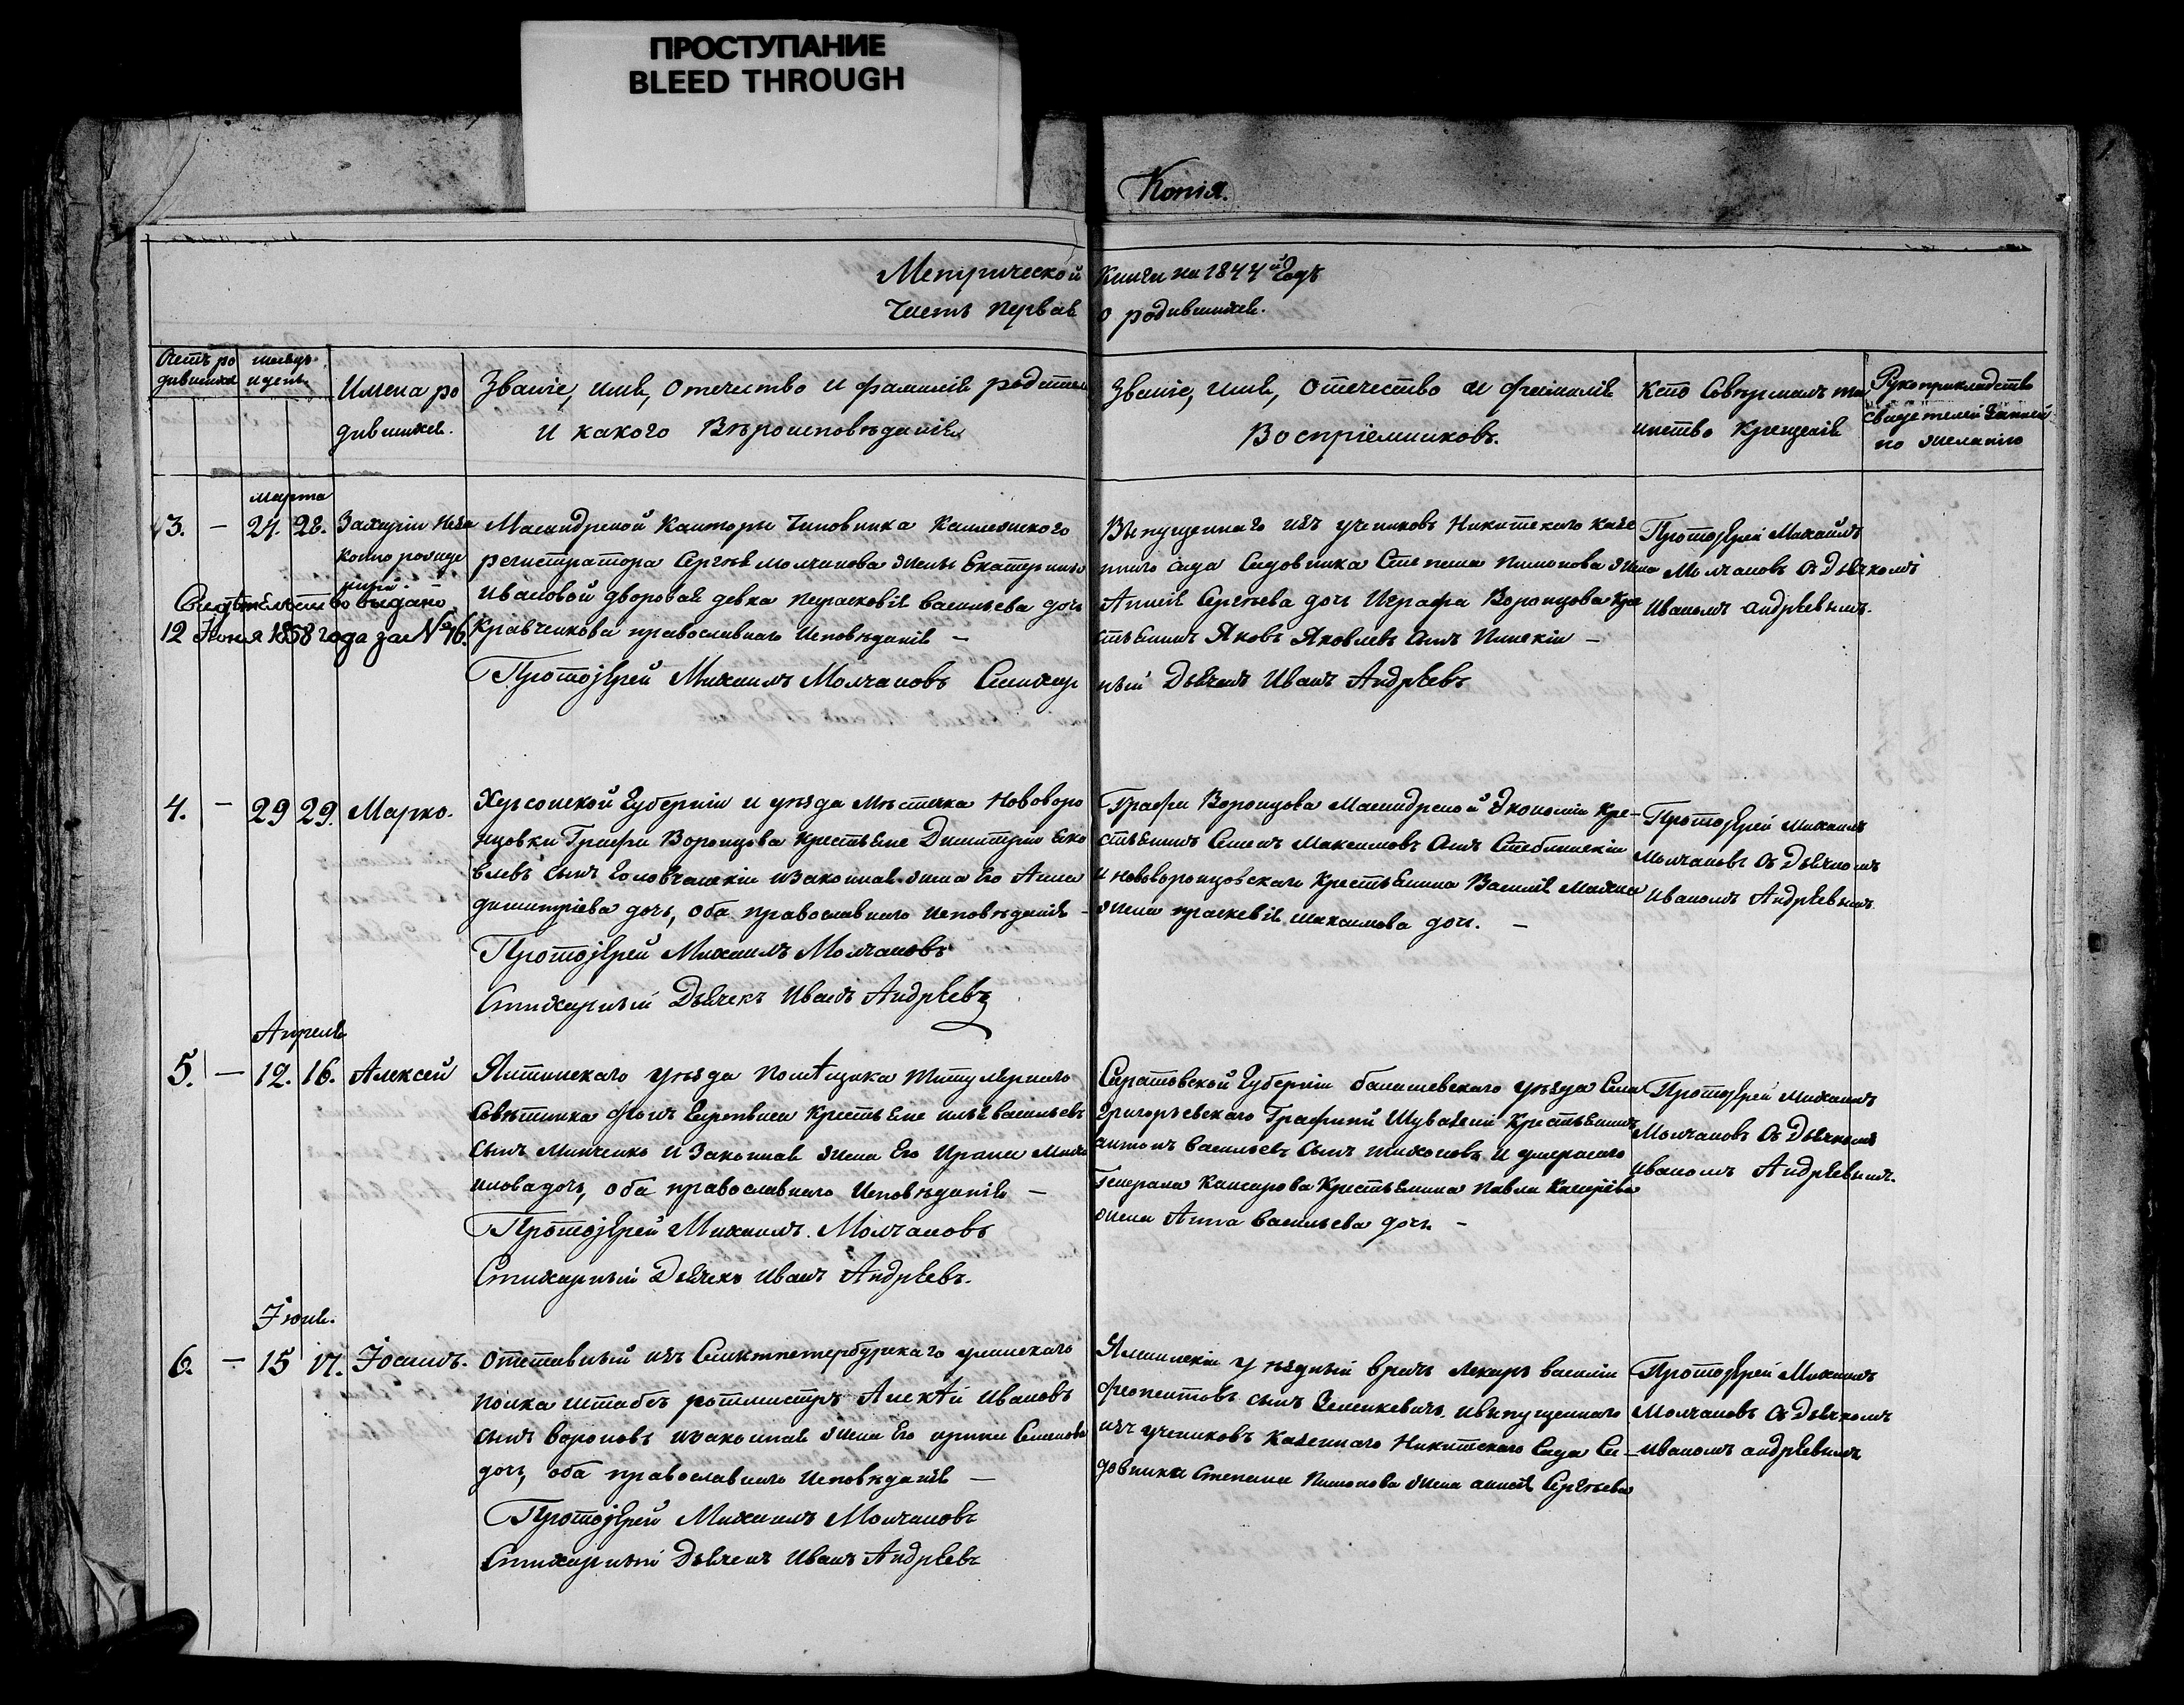 ПРОСТУПАНИЕ
BLEED THROUGH
Копія.
Метрической Книги на 1844й Годъ
Часть первая о родившихся.
Счетъ ро
дившихся
мѣсяцъ
и день.
Имена ро
дившихся.
Званіе, имя, отечество и фамилія родителей
и какого Вѣроисповѣданія
Званіе, имя, отечество и фамилія
Воспріемниковъ.
Кто Совершалъ та
инство Крещенія
Рукоприкладство
свидетелей записи
по желанію
Марта
3. — 27. 28.
Захарій неза
конно рожде
нный
Свидѣтельство выдано
12 Іюня 1858 года за № 76.
Масандрской Канторы Чиновника Коллежского
регистратора Сергѣя молчанова жены Екатерины
Ивановой дворовая девка парасковія васильева дочь
Кравченкова православнаго Исповѣданія —
Протоіерей Михаилъ Молчановъ Стихар
ный Дьячекъ Иванъ Андреевъ
Выпущеннаго изъ учениковъ Никитского казе
нного сада Садовника Степана Пимонова жена
Аннея Сергѣева дочь Играфа Воронцова Кре
стьянинъ Яковъ Яковлевъ Сынъ —
Протоіерей Михаилъ
Молчановъ съ Дьячкомъ
Иваномъ андреевымъ.
4. — 29 29. Марко.
Херсонской Губерніи и уѣзда Мѣстечка Нововоро
нцовки Графа Воронцова Крестьяне Димитрій яко
влевъ сынъ и законная жена Его Анна
димитріева дочь, оба православнаго исповѣданія —
Протоіерей Михаилъ Молчановъ
Стихарный Дьячекъ Иванъ Андреевъ
Графа Воронцова Масандрской Экономіи Кре-
стьянинъ Семенъ Максимовъ Сынъ Стеблинскій
и нововоронцовскаго крестьянина Василія
жена праскевія максимова дочь. —
Протоіерей Михаилъ
Молчановъ съ Дьячкомъ
Иваномъ Андреевымъ
Апреля
5. — 12. 16. Алексей
Ялтинскаго уѣзда помѣщика титулярнаго
Совѣтника фонъ крестьяне илья васильевъ
сынъ Минченко и Законная жена Его Ирина
нова дочь, оба православнаго Исповѣданія —
Протоіерей Михаилъ Молчановъ
Стихарный Дьячекъ Иванъ Андреевъ.
Саратовской Губерніи балашевскаго уѣзда Села
Григорьевскаго Графини Шуваловой Крестьянинъ
антонъ васильевъ Сынъ тихоновъ и умершаго
Генерала Крестьянина Павла
жена Анна васильева дочь —
Протоіерей Михаилъ
Молчановъ съ Дьячкомъ
иваномъ Андреевымъ.
Іюня.
6. — 15 17. Іоаннъ.
Отставный изъ Санктпетербургскаго уланскаго
полка штабсъ ротмистръ Алексѣй Ивановъ
сынъ вороновъ и законная жена Его ирина Семенова
дочь, оба православнаго Исповѣданія —
Протоіерей Михаилъ Молчановъ
Стихарный Дьячекъ Иванъ Андреевъ
Ялтинскій уѣздный врачъ Лекарь василій
феопентовъ сынъ и выпущеннаго
изъ учениковъ казеннаго Никитскаго Сада Са-
довника степана Пимонова жена аннея Сергѣева
Протоіерей Михаилъ
Молчановъ съ Дьячкомъ
Иваномъ андреевымъ